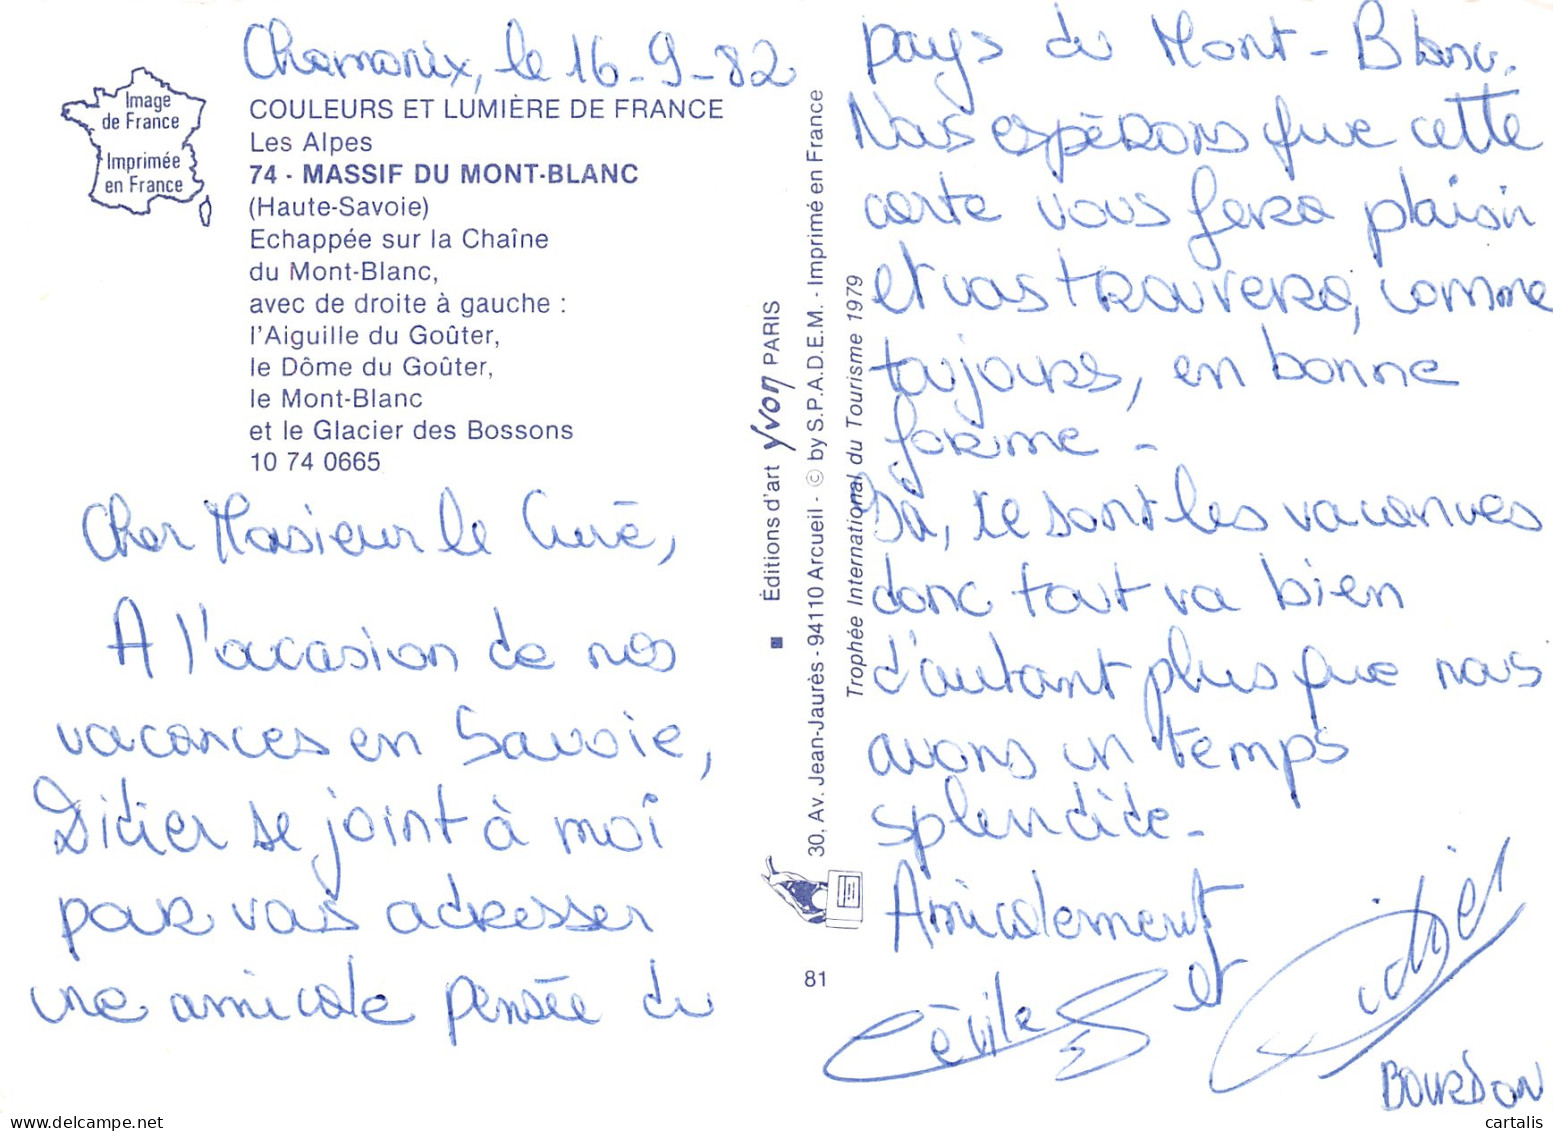 Chamonix, le 16-9-82
Image
de France
Imprimée
en France
COULEURS ET LUMIÈRE DE FRANCE
Les Alpes
74 - MASSIF DU MONT-BLANC
(Haute-Savoie)
Echappée sur la Chaîne
du Mont-Blanc,
avec de droite à gauche :
l'Aiguille du Goûter,
le Dôme du Goûter,
le Mont-Blanc
et le Glacier des Bossons
10 74 0665
Cher Monsieur le Curé,
A l'occasion de nos
vacances en Savoie,
Didier se joint à moi
pour vous adresser
une amicale pensée du
Éditions d'art yvon PARIS
30, Av. Jean-Jaurès - 94110 Arcueil - © by S.P.A.D.E.M. - Imprimé en France
Trophée International du Tourisme 1979
81
pays du Mont-Blanc.
Nous espérons que cette
carte vous fera plaisir
et vous trouvera, comme
toujours, en bonne
forme -
Ici, ce sont les vacances
donc tout va bien
d'autant plus que nous
avons un temps
splendide -
Amicalement
Cécile et Didier
BOURDON
cartalis